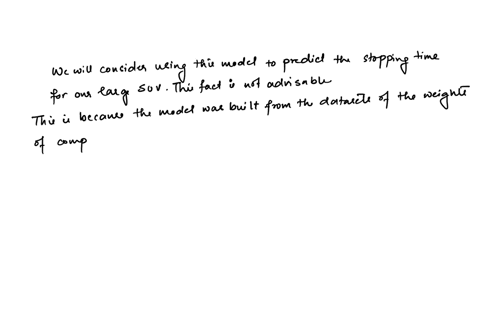 We will consider using this model to predict the stopping time
for our large SUV. This fact is not advisable
This is because the model was built from the datasets of the weights
of comp